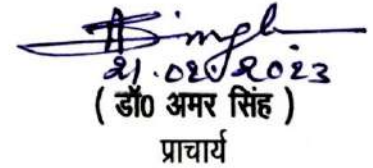 A Singh
21.02.2023
( डॉ0 अमर सिंह )
प्राचार्य